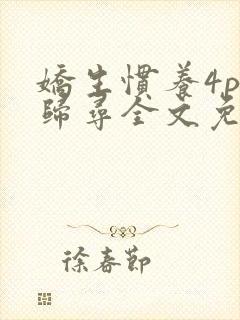 嬌生慣養4p
歸尋全文免
徐春節